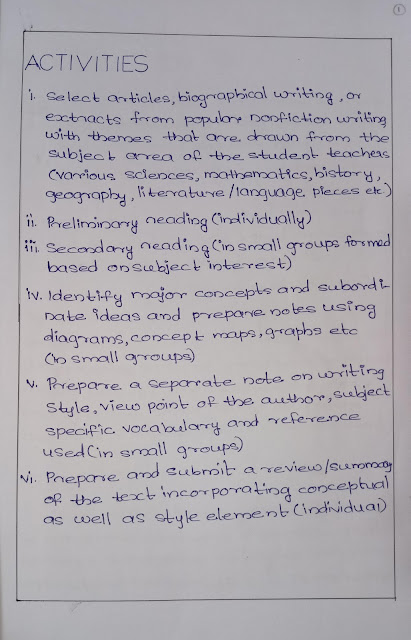 1
ACTIVITIES
i. Select articles, biographical writing, or
extracts from popular nonfiction writing
with themes that are drawn from the
subject area of the student teachers
(various sciences, mathematics, history,
geography, literature/language pieces etc)
ii. Preliminary reading (individually)
iii. Secondary reading (in small groups formed
based on subject interest)
iv. Identify major concepts and subordi-
nate ideas and prepare notes using
diagrams, concept maps, graphs etc
(in small groups)
v. Prepare a separate note on writing
style, view point of the author, subject
specific vocabulary and reference
used (in small groups)
vi. Prepare and submit a review/summary
of the text incorporating conceptual
as well as style element (individual)